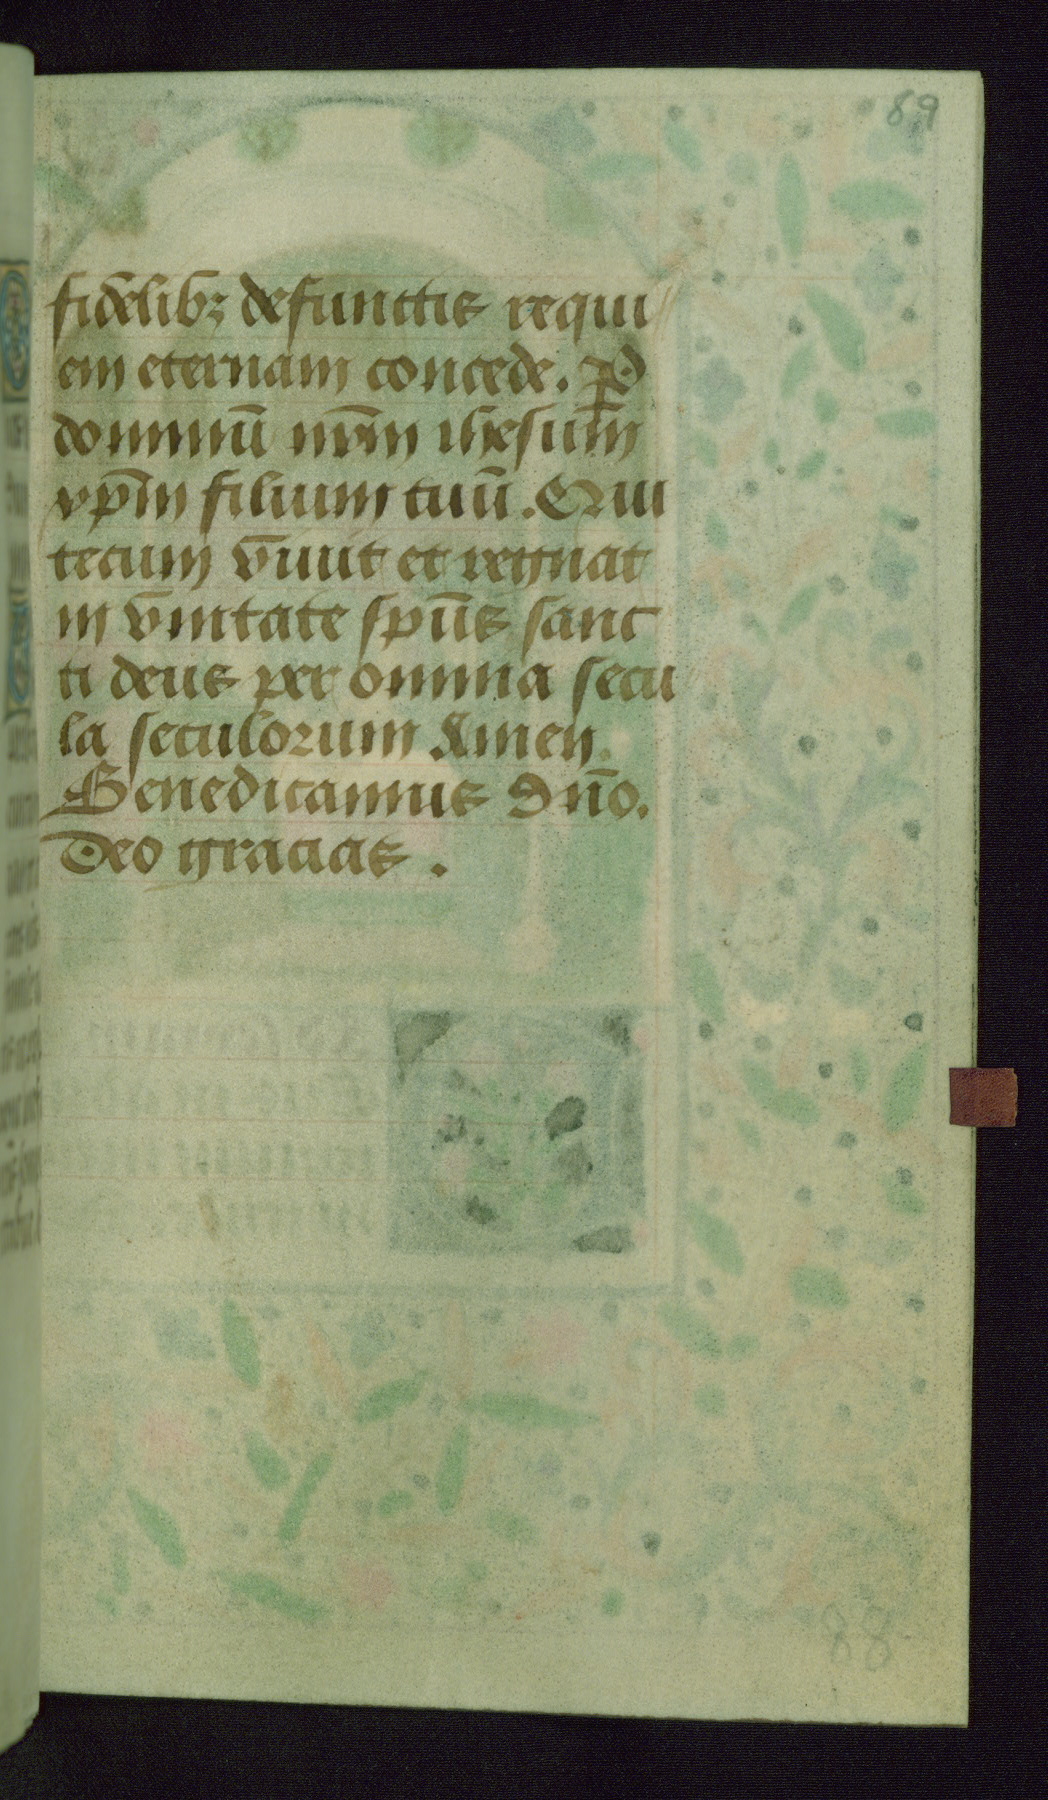 89
fidelibꝫ defunctis requi
em eternam concede. P̱
dominū nr̄m ihesum
xp̄m filium tuū. Qui
tecum viuit et regnat
in vnitate spūs sanc
ti deus per omnia secu
la seculorum Amen.
Benedicamus Dn̄o.
Deo gracias .
88